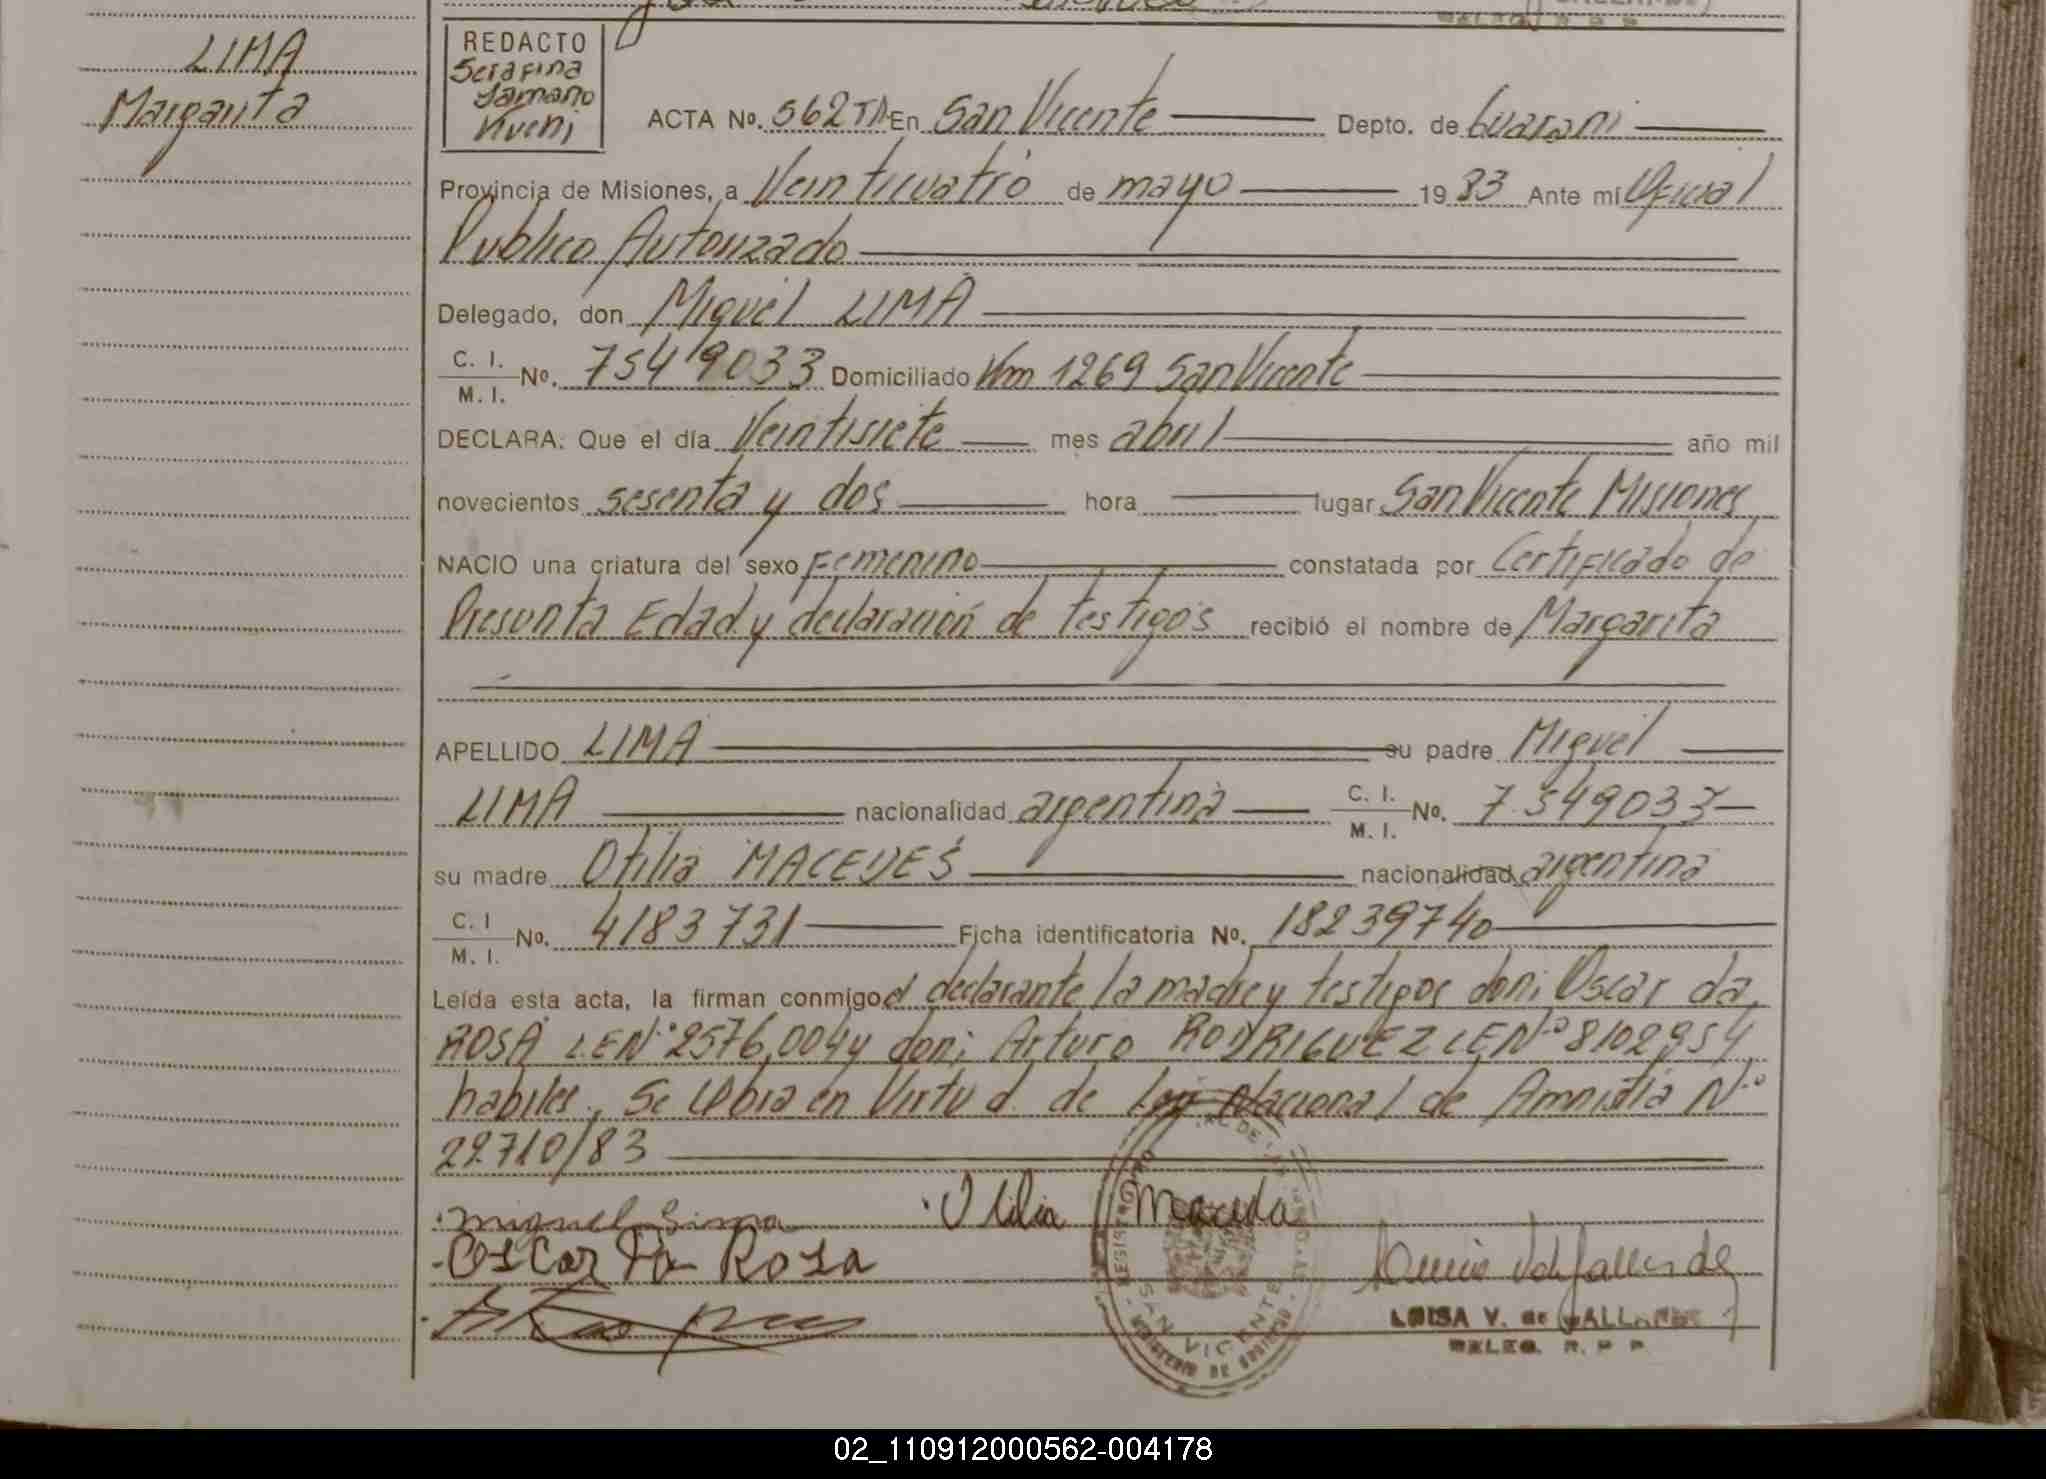 LIMA
Margarita
REDACTO
Serafina
Kueni
ACTA No. 562 TD En San Vicente Depto. de Guarani
Provincia de Misiones, a Veinticuatro de mayo 1983 Ante mí Oficial
Publico Autorizado
Delegado, don Miguel LIMA
C. I.
M. I. No. 7549033 Domiciliado Km 1269 San Vicente
DECLARA: Que el día Veintisiete mes abril año mil
novecientos sesenta y dos hora lugar San Vicente Misiones
NACIO una criatura del sexo Femenino constatada por Certificado de
Presunta Edad y declaración de testigos recibió el nombre de Margarita
APELLIDO LIMA su padre Miguel
LIMA nacionalidad argentina C. I.
M. I. No. 7.549033
su madre Otilia MACEDES nacionalidad argentina
C. I
M. I. No. 4183731 Ficha identificatoria No. 18239740
Leída esta acta, la firman conmigo el declarante la madre y testigos don: Oscar da
ROSA LEN° 2576,004 y don: Arturo RODRIGUEZ LEN° 8102954
habiles, Se labra en Virtud de Ley Nacional de Amnistia N°
22710/83
miguel Lima Otilia Maceda
Oscar Da Rosa
REGISTRO SAN VICENTE
LUISA V. de GALLARDE
DELEG. R. P. P.
02_110912000562-004178